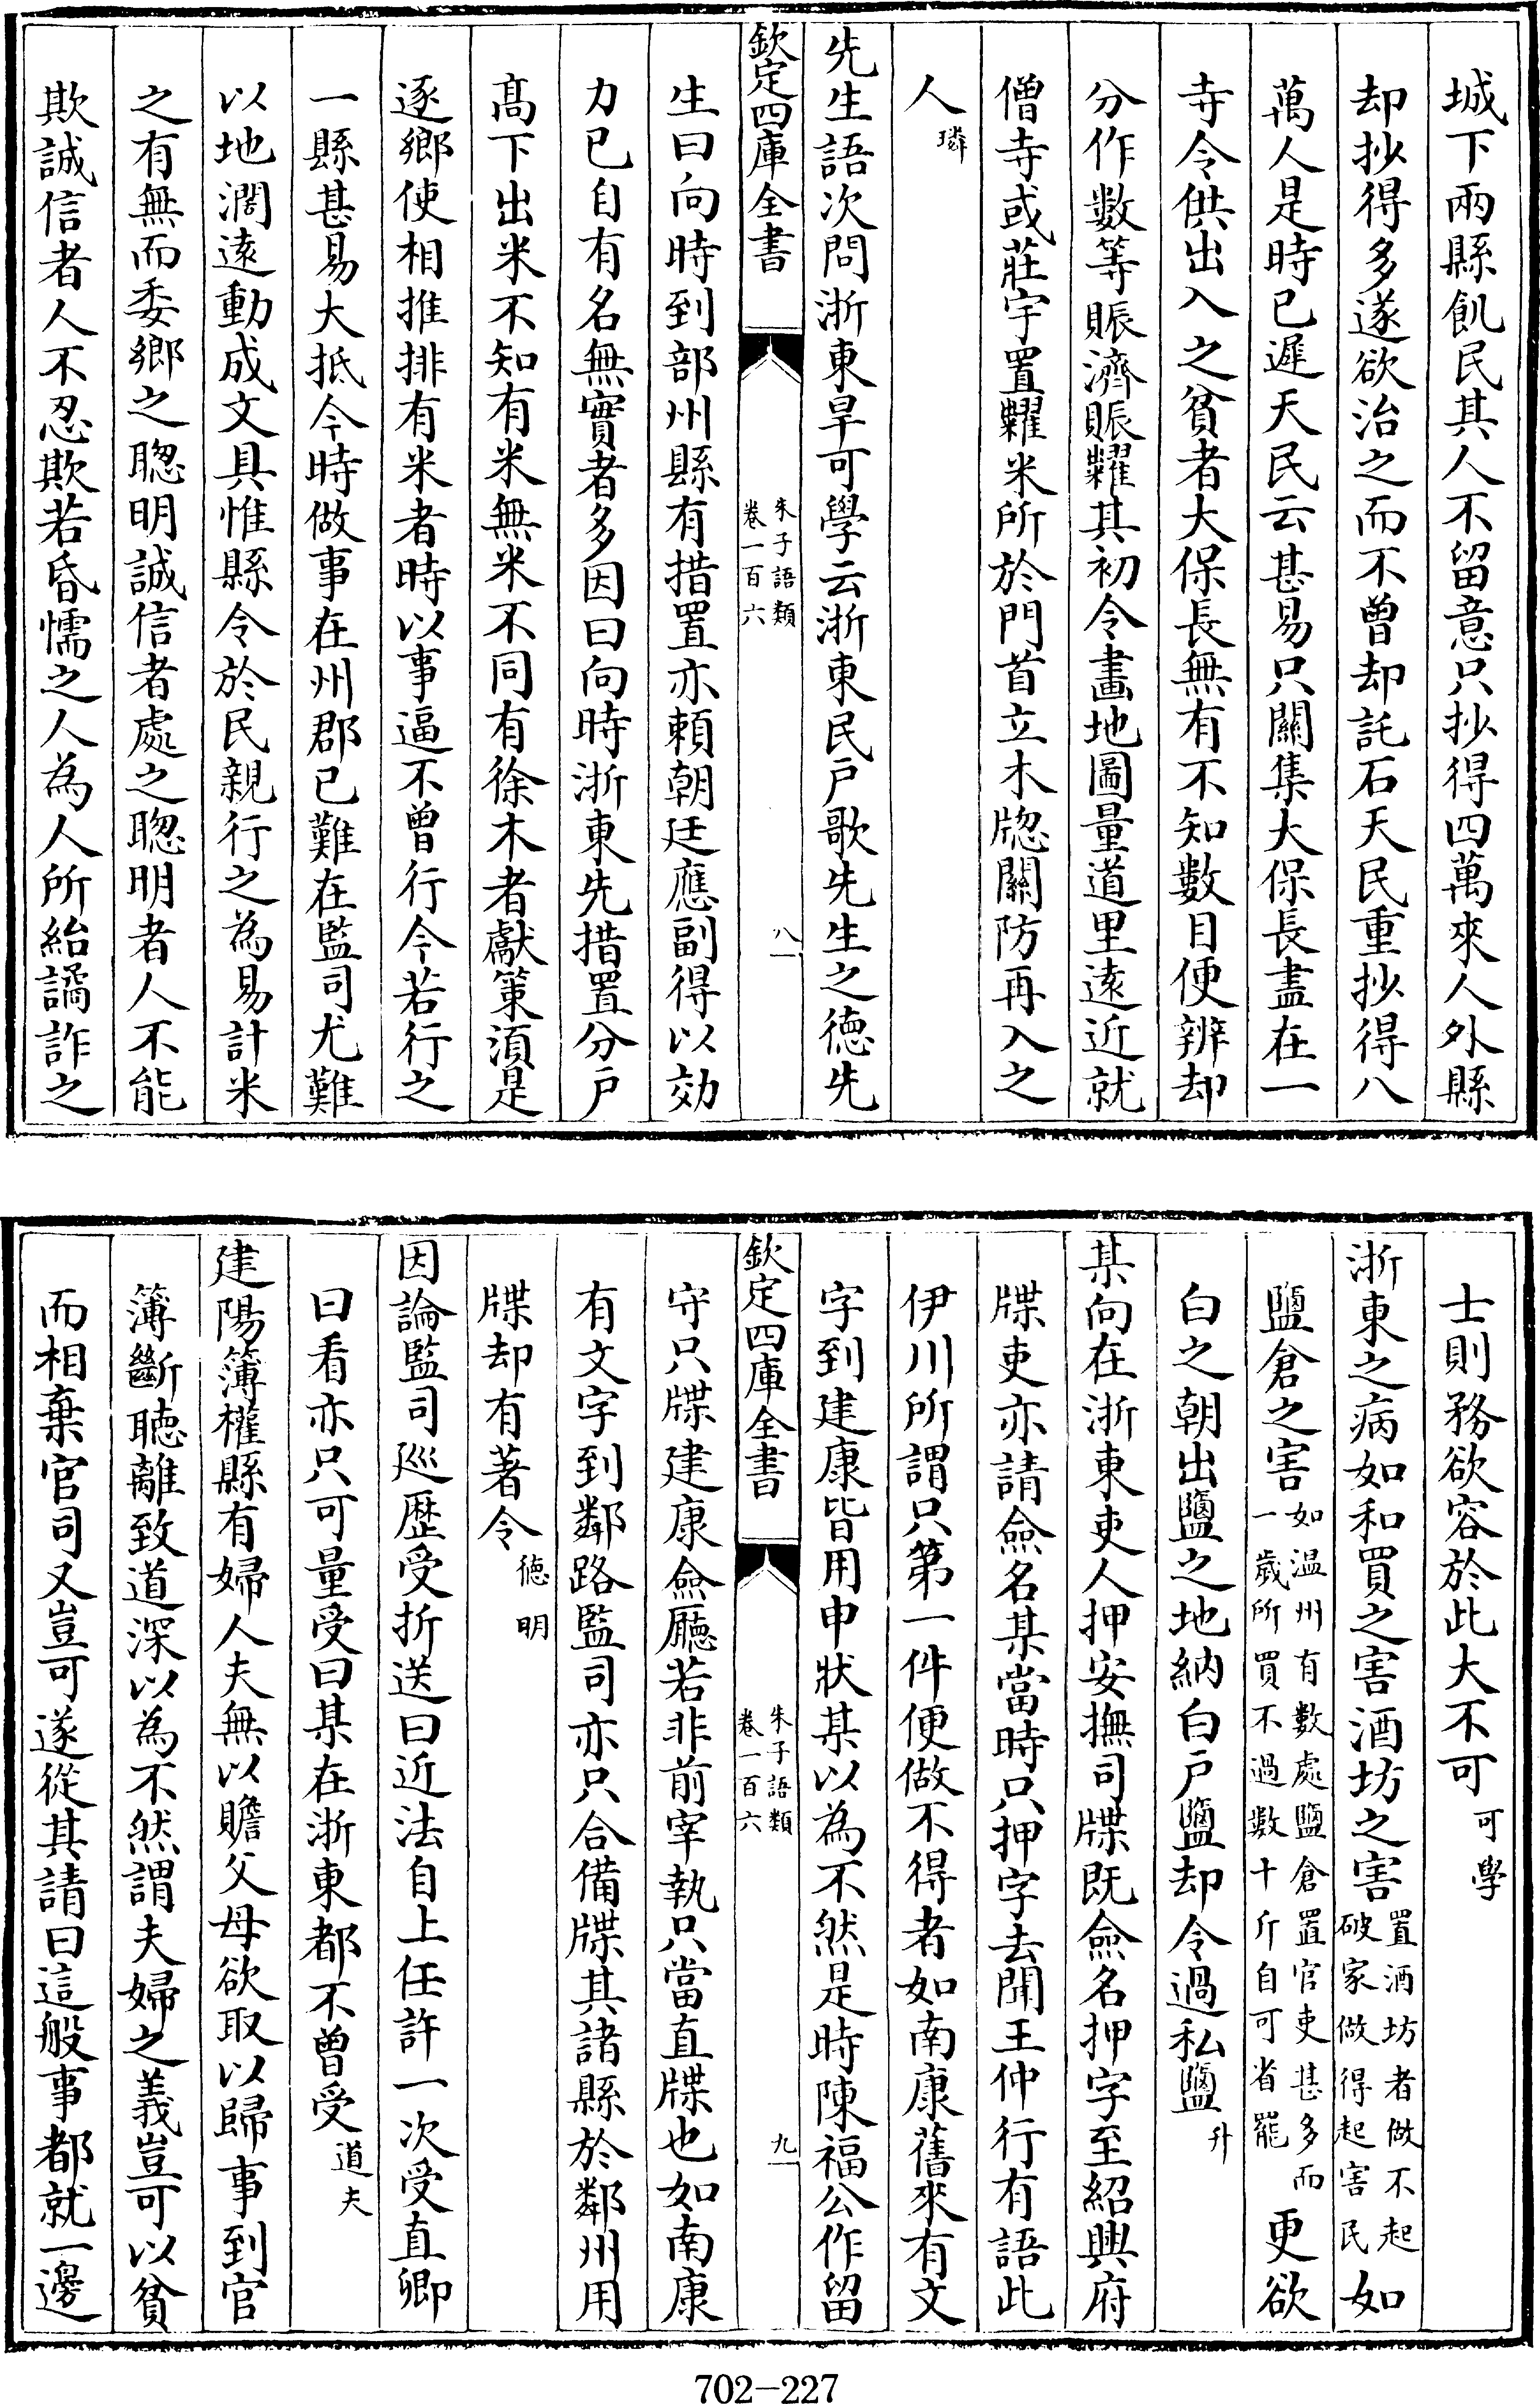 城下兩縣飢民其人不留意只抄得四萬來人外縣
却抄得多遂欲治之而不曾却託石天民重抄得八
萬人是時已遲天民云甚易只關集大保長盡在一
寺令供出入之貧者大保長無有不知數目便辨却
分作數等賑濟賑糶其初令畫地圖量道里遠近就
僧寺或莊宇置糶米所於門首立木牎關防再入之
人璘
先生語次問浙東旱可學云浙東民戶歌先生之德先
欽定四庫全書
朱子語類
卷一百六
八
生曰向時到部州縣有措置亦頼朝廷應副得以效
力已自有名無實者多因曰向時浙東先措置分戶
髙下出米不知有米無米不同有徐木者獻策須是
逐鄉使相推排有米者時以事逼不曾行今若行之
一縣甚易大抵今時做事在州郡已難在監司尤難
以地濶逺動成文具惟縣令於民親行之為易計米
之有無而委鄉之聰明誠信者處之聰明者人不能
欺誠信者人不忍欺若昏懦之人為人所紿譎詐之
士則務欲容於此大不可可學
浙東之病如和買之害酒坊之害置酒坊者做不起破家做得起害民如
鹽倉之害如温州有數處鹽倉置官吏甚多而一歲所買不過數十斤自可省罷更欲
白之朝出鹽之地納白戶鹽却令過私鹽升
某向在浙東吏人押安撫司牒既僉名押字至紹興府
牒吏亦請僉名某當時只押字去聞王仲行有語此
伊川所謂只第一件便做不得者如南康舊來有文
字到建康皆用申狀某以為不然是時陳福公作留
欽定四庫全書
朱子語類
卷一百六
九
守只牒建康僉廳若非前宰執只當直牒也如南康
有文字到鄰路監司亦只合備牒其諸縣於鄰州用
牒却有著令德明
因論監司廵歴受折送曰近法自上任許一次受直卿
曰看亦只可量受曰某在浙東都不曾受道夫
建陽簿權縣有婦人夫無以贍父母欲取以歸事到官
簿斷聽離致道深以為不然謂夫婦之義豈可以貧
而相棄官司又豈可遂從其請曰這般事都就一邊
702-227